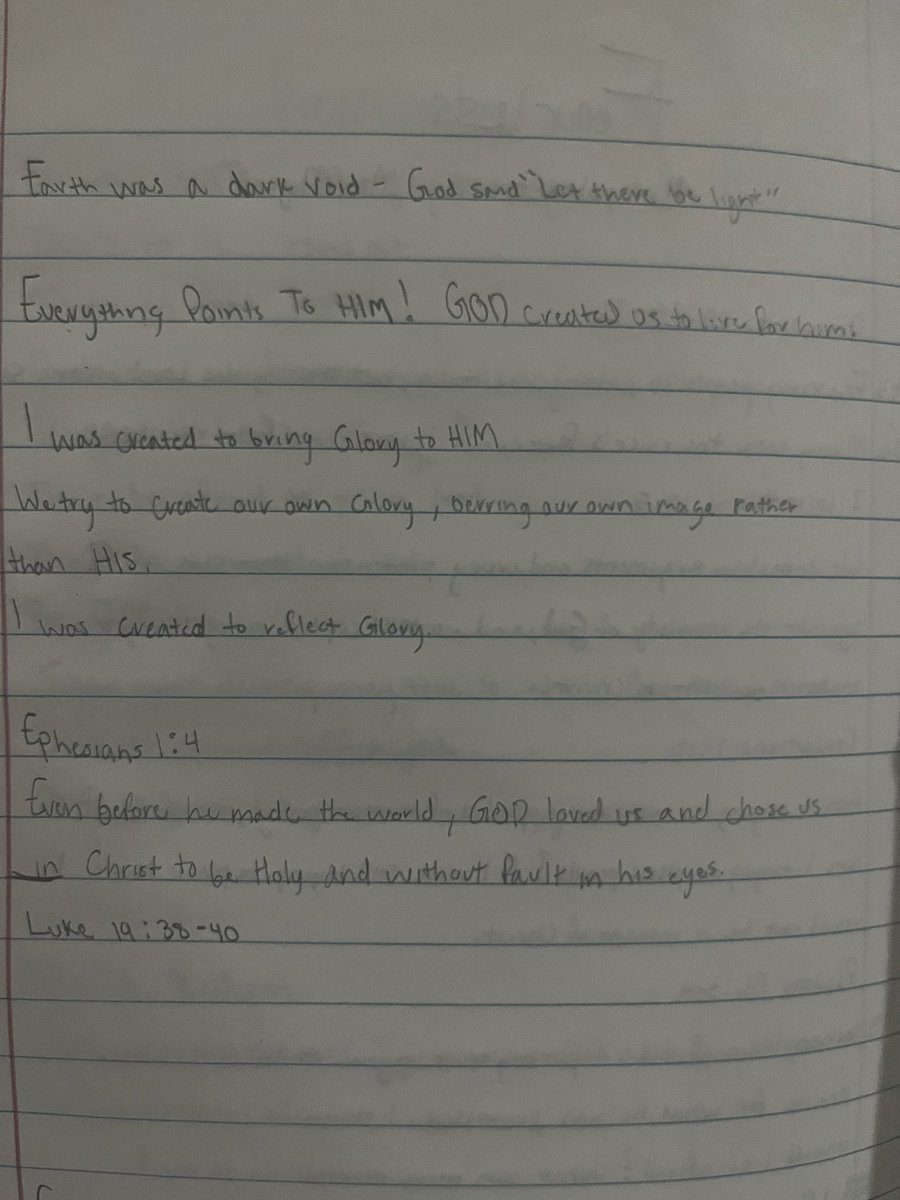 Earth was a dark void - God said "Let there be light"
Everything Points To HIM! GOD created us to live for him.
I was created to bring Glory to HIM
We try to create our own Glory, berring our own image rather
than His.
I was created to reflect Glory.
Ephesians 1:4
Even before he made the world, GOD loved us and chose us
in Christ to be Holy and without fault in his eyes.
Luke 19:38-40